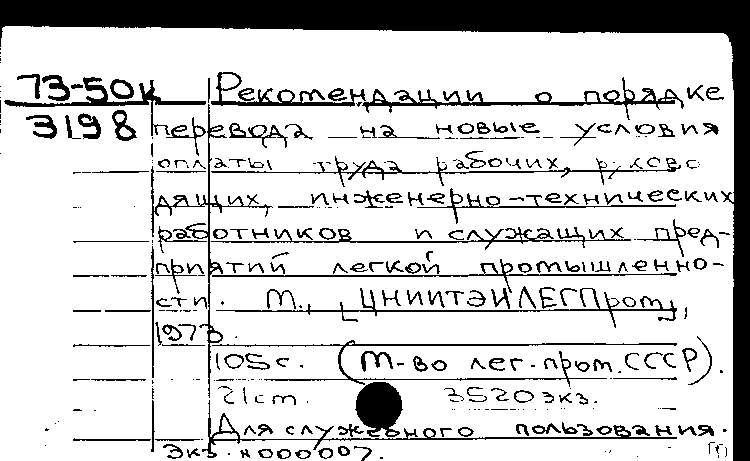 73-50к Рекомендации о порядке
3198 перевода на новые условия
оплаты труда рабочих, руково
дящих, инженерно-технических
работников и служащих пред-
приятий легкой промышленно-
сти. М., [ЦНИИТЭИЛЕГПром],
1973.
105 с. (М-во лег. пром. СССР).
21 см. 3520 экз.
Для служебного пользования.
Экз. N000007.